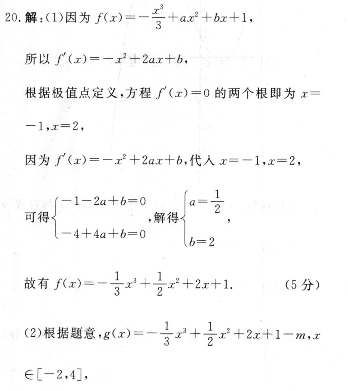 20.解:(1)因为 f(x)=-x³/3+ax²+bx+1,
所以 f′(x)=-x²+2ax+b,
根据极值点定义,方程 f′(x)=0 的两个根即为 x=
-1,x=2,
因为 f′(x)=-x²+2ax+b,代入 x=-1,x=2,
可得{-1-2a+b=0 -4+4a+b=0,解得{a=1/2 b=2,
故有 f(x)=-1/3x³+1/2x²+2x+1. (5分)
(2)根据题意,g(x)=-1/3x³+1/2x²+2x+1-m,x
∈[-2,4],